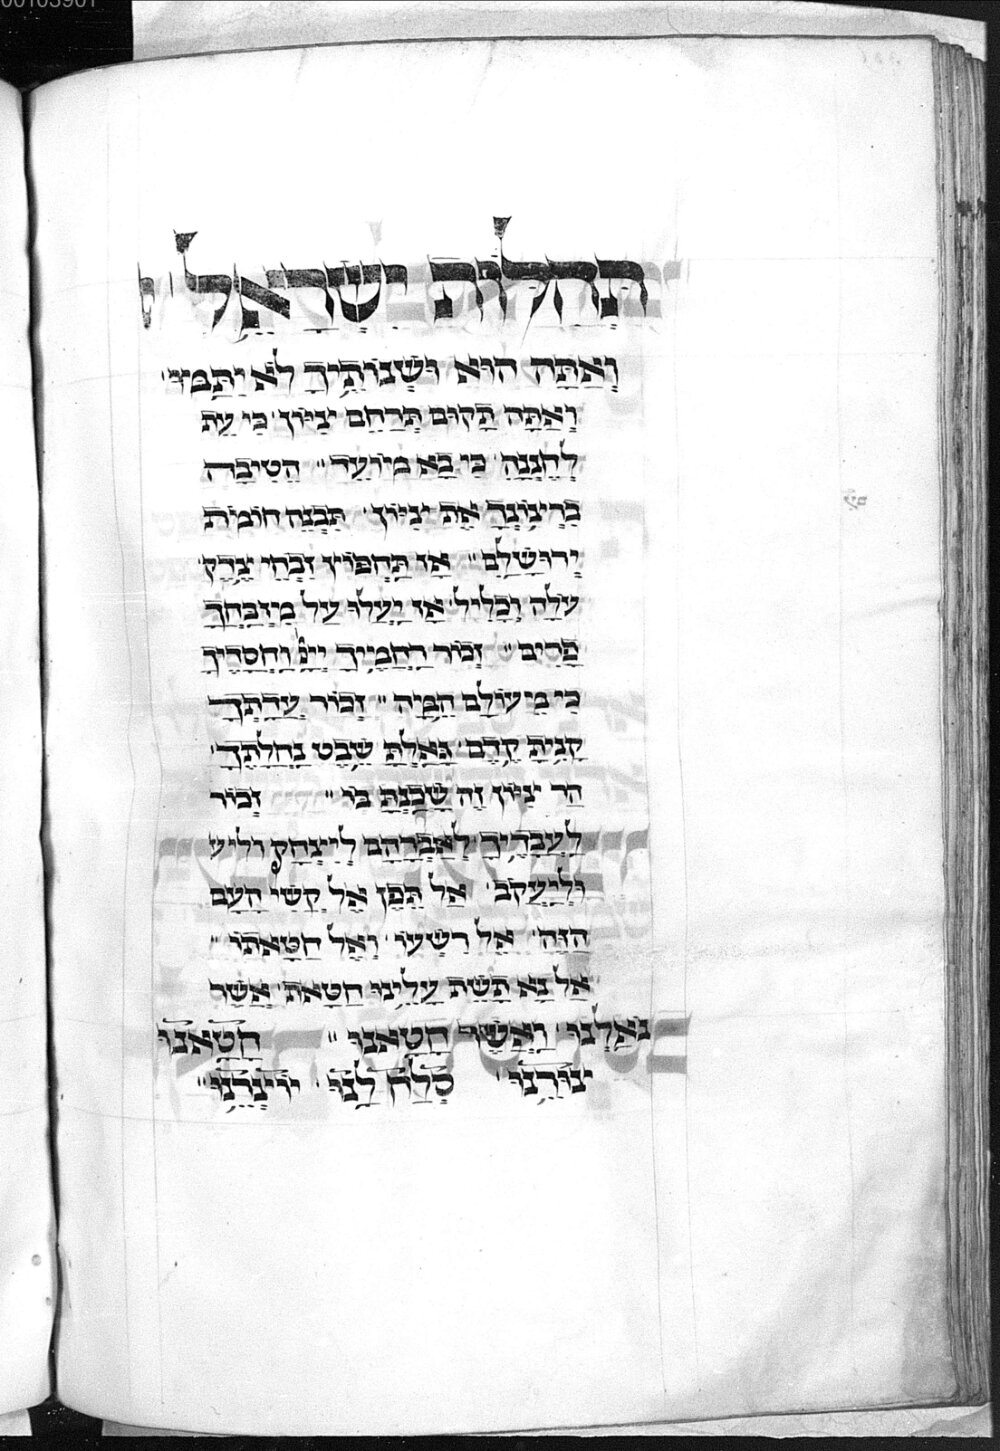 00103901
תְּהִלּוֹת יִשְׂרָאֵל״
וְאַתָּה הוּא וּשְׁנוֹתֶיךָ לֹא יִתָּמּוּ׃
וְאַתָּה תָקוּם תְּרַחֵם צִיּוֹן׳ כִּי עֵת
לְחֶנְנָהּ׳ כִּי בָא מוֹעֵד״ הֵטִיבָה
בִרְצוֹנְךָ אֶת צִיּוֹן׳ תִּבְנֶה חוֹמוֹת
יְרוּשָׁלִָם״ אָז תַּחְפּוֹץ זִבְחֵי צֶדֶק׳
עוֹלָה וְכָלִיל׳ אָז יַעֲלוּ עַל מִזְבַּחֲךָ
פָרִים״ זְכוֹר רַחֲמֶיךָ יְיָ׳ וַחֲסָדֶיךָ
כִּי מֵעוֹלָם הֵמָּה״ זְכוֹר עֲדָתְךָ
קָנִיתָ קֶדֶם׳ גָּאַלְתָּ שֵׁבֶט נַחֲלָתֶךָ׳
הַר צִיּוֹן זֶה שָׁכַנְתָּ בּוֹ״ זְכוֹר
לַעֲבָדֶיךָ לְאַבְרָהָם לְיִצְחָק וליע
וּלְיַעֲקֹב׳ אַל תֵּפֶן אֶל קְשִׁי הָעָם
הַזֶּה׳ אֶל רִשְׁעוֹ׳ וְאֶל חַטָּאתוֹ״
אַל נָא תָשֵׁת עָלֵינוּ חַטָּאת׳ אֲשֶׁר
נוֹאַלְנוּ׳ וַאֲשֶׁר חָטָאנוּ״ חָטָאנוּ
צוּרֵנוּ׳ סְלַח לָנוּ׳ יוֹצְרֵנוּ״